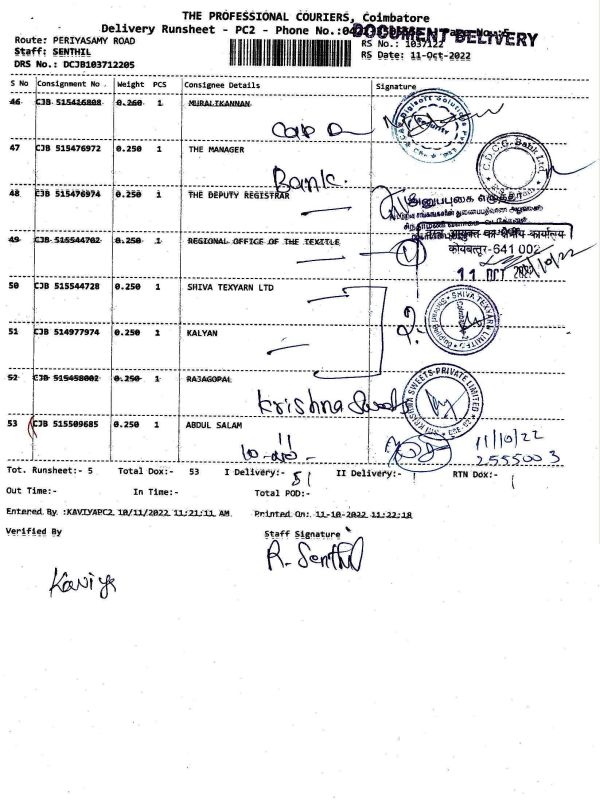 THE PROFESSIONAL COURIERS, Coimbatore
Delivery Runsheet - PC2 - Phone No.: Page No.: 5
DOCUMENT DELIVERY
Route: PERIYASAMY ROAD RS No.: 1037122
Staff: SENTHIL RS Date: 11-Oct-2022
DRS No.: DCJB103712205
S No Consignment No . Weight PCS Consignee Details Signature
46 CJB 515416808 0.260 1 MURALIKANNAN
47 CJB 515476972 0.250 1 THE MANAGER
Bank.
48 CJB 515476974 0.250 1 THE DEPUTY REGISTRAR
49 CJB 515544702 0.250 1 REGIONAL OFFICE OF THE TEXITLE
कोयंबत्तूर-641 002
11 OCT
50 CJB 515544728 0.250 1 SHIVA TEXYARN LTD
SHIVA TEXYARN LIMITED
51 CJB 514977974 0.250 1 KALYAN
52 CJB 515458002 0.250 1 RAJAGOPAL
Krishna Sweets
SWEETS PRIVATE LIMITED
53 CJB 515509685 0.250 1 ABDUL SALAM
11/10/22
2555003
Tot. Runsheet:- 5 Total Dox:- 53 I Delivery:- 51 II Delivery:- RTN Dox:-
Out Time:- In Time:- Total POD:-
Entered By :KAVIYAPC2 10/11/2022 11:21:11 AM Printed On: 11-10-2022 11:22:18
Verified By Staff Signature
R. Senthil
Kaviya